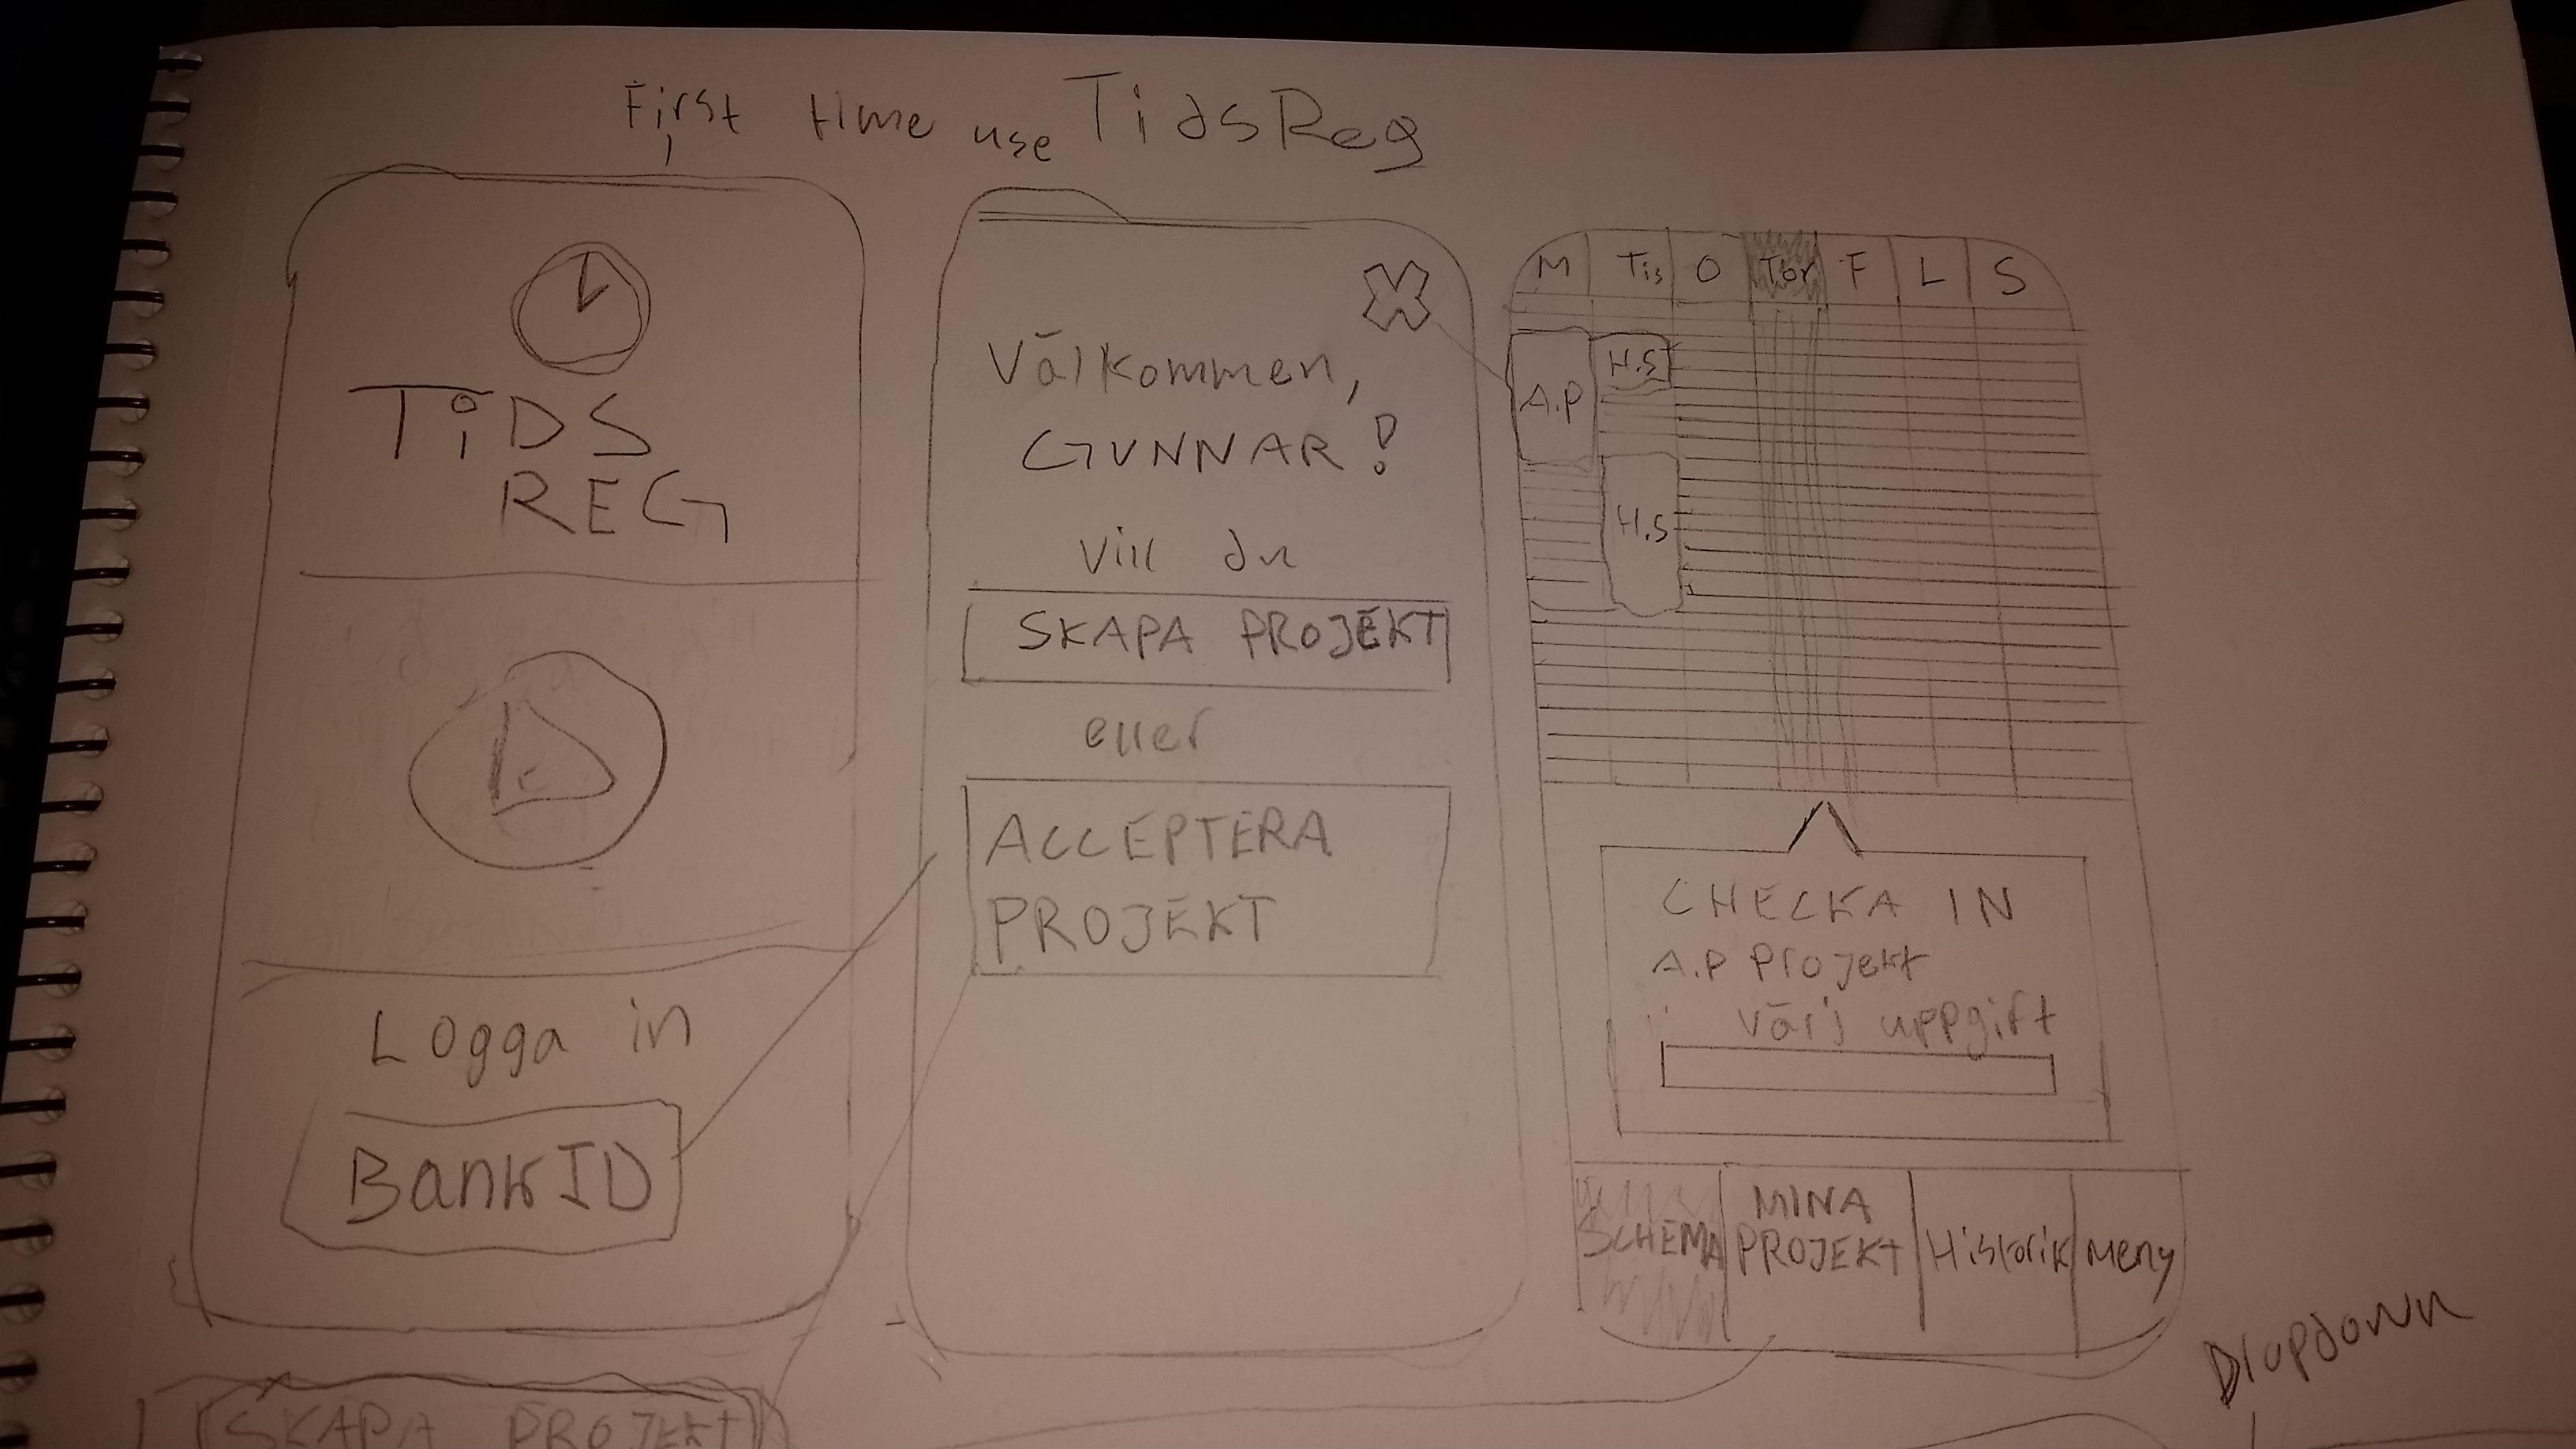 First time use TidsReg
TiDS
REG
Logga in
BankID
Välkommen,
GUNNAR!
vill du
SKAPA PROJEKT
eller
ACCEPTERA
PROJEKT
M Tis O Tor F L S
A.P
H.S
H.S
CHECKA IN
A.P Projekt
välj uppgift
SCHEMA
MINA
PROJEKT
Historik
Meny
SKAPA PROJEKT
Dropdown